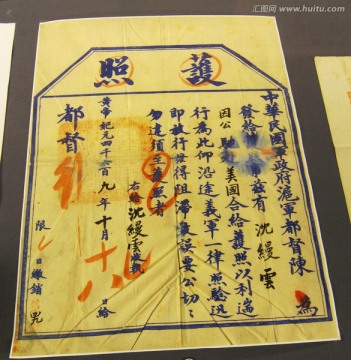 護照
中華民國軍政府滬軍都督陳 為
發給護照事茲有 沈縵雲
因公 赴美國合給護照以利遄
行為此仰沿途義軍一律照驗迅
即放行毋得阻滯致誤要公切切
勿違須至護照者
右給沈縵雲收執
黃帝紀元四千六百九年十月十八日給
都督
限 日繳銷
汇图网 www.huitu.com